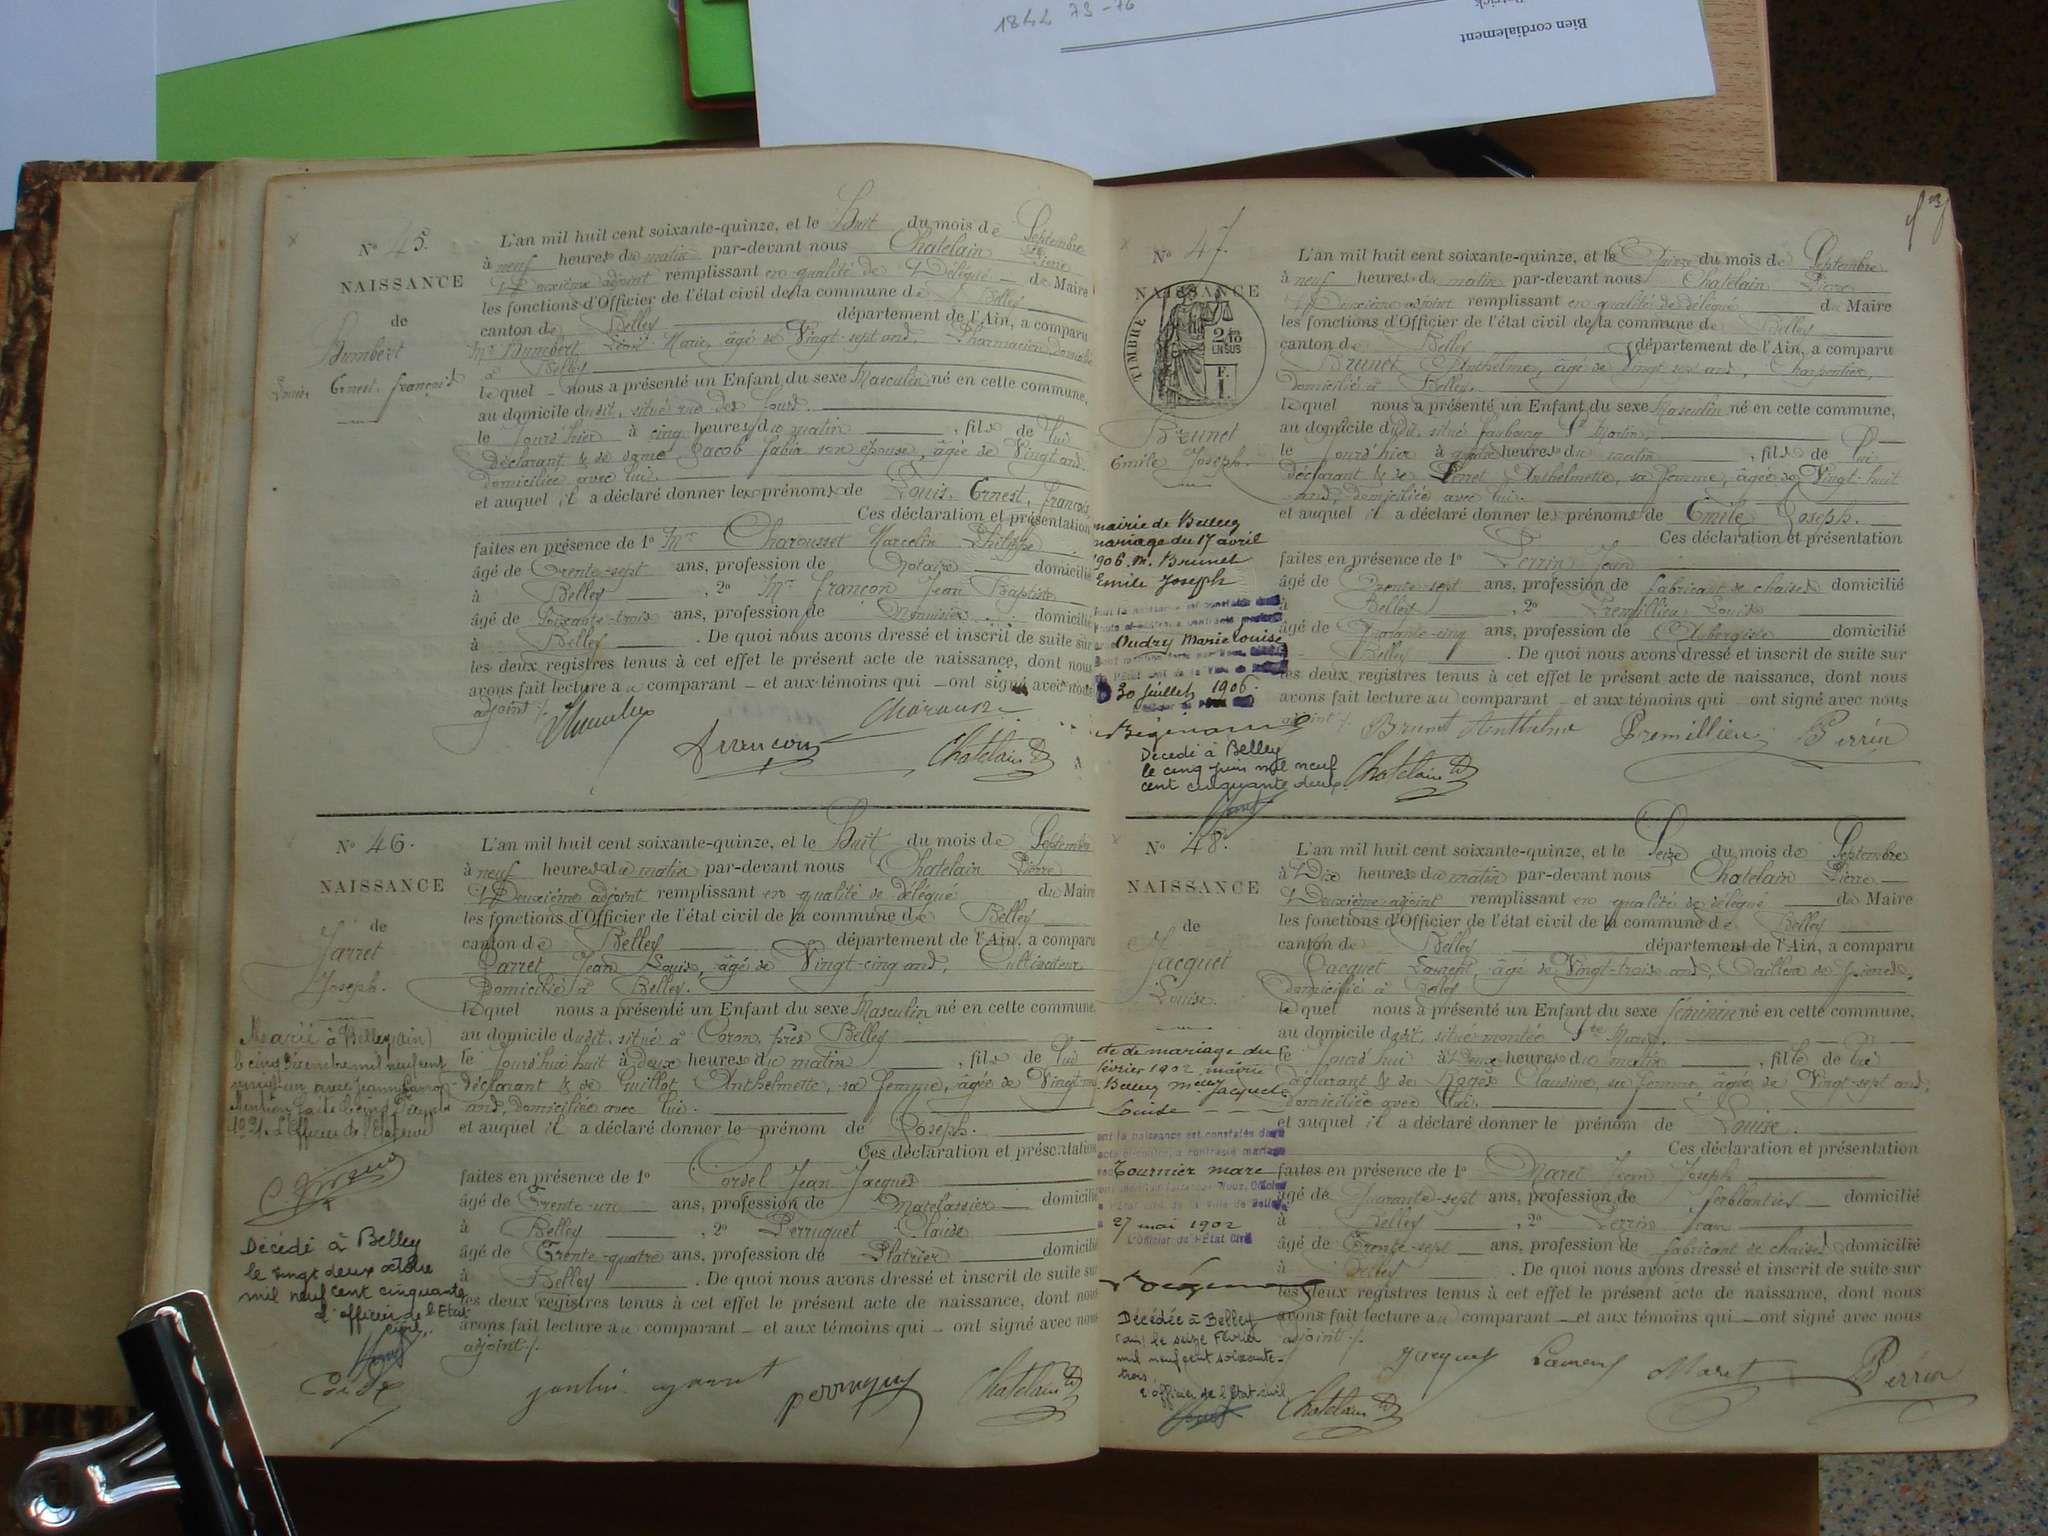 1844 73-76
Bien cordialement
N° 45.
NAISSANCE
de
Humbert
Louis Ernest François
L'an mil huit cent soixante-quinze, et le Huit du mois de Septembre
à neuf heures du matin par-devant nous Chatelain Pierre
Deuxième adjoint remplissant en qualité de Délégué du Maire
les fonctions d'Officier de l'état civil de la commune de Belley
canton de Belley département de l'Ain, a comparu
Mr Humbert Léon Marie, âgé de Vingt-sept ans, Pharmacien, domicilié
à Belley
lequel nous a présenté un Enfant du sexe Masculin né en cette commune,
au domicile dudit, situé rue des fours.
le jour d'hier à cinq heures du matin, fils de lui
déclarant & de dame Jacob fabia son épouse, âgée de Vingt ans
domiciliée avec lui.
et auquel il a déclaré donner les prénoms de Louis, Ernest, François,
Ces déclaration et présentation
faites en présence de 1° Mr Charousset Marcelin Philippe
âgé de Trente-sept ans, profession de Notaire domicilié
à Belley, 2° Mr françon Jean Baptiste
âgé de Soixante-trois ans, profession de Menuisier domicilié
à Belley. De quoi nous avons dressé et inscrit de suite sur
les deux registres tenus à cet effet le présent acte de naissance, dont nous
avons fait lecture au comparant et aux témoins qui ont signé avec nous
adjoint
françon
Chatelain
N° 46.
NAISSANCE
de
Jarret
Joseph.
Marié à Belley (ain)
le cinq Décembre mil neuf cent
Décédé à Belley
le vingt deux octobre
mil neuf cent cinquante
L'officier de l'Etat
civil
L'an mil huit cent soixante-quinze, et le Huit du mois de Septembre
à neuf heures du matin par-devant nous Chatelain Pierre
Deuxième adjoint remplissant en qualité de délégué du Maire
les fonctions d'Officier de l'état civil de la commune de Belley
canton de Belley département de l'Ain, a comparu
Jarret Jean Louis, âgé de Vingt-cinq ans, Cultivateur
domicilié à Belley.
lequel nous a présenté un Enfant du sexe Masculin né en cette commune,
au domicile dudit, situé à Coron, près Belley
le jourd'hui huit à deux heures du matin, fils de lui
déclarant & de Guillot Anthelmette, sa femme, âgée de Vingt-
ans, domiciliée avec lui.
et auquel il a déclaré donner le prénom de Joseph.
Ces déclaration et présentation
faites en présence de 1° Cordel Jean Jacques
âgé de Trente-un ans, profession de Matelassier domicilié
à Belley, 2° Perruquet Claude
âgé de Trente-quatre ans, profession de Platrier domicilié
à Belley. De quoi nous avons dressé et inscrit de suite sur
les deux registres tenus à cet effet le présent acte de naissance, dont nous
avons fait lecture au comparant et aux témoins qui ont signé avec nous
adjoint
perruquet
Chatelain
N° 47.
NAISSANCE
TIMBRE
2 10 EN SUS
F. 1
Brunet
Emile Joseph.
mairie de Belley
mariage du 17 avril
1906. M. Brunet
Emile Joseph
Oudry Marie Louise
30 juillet 1906.
Décédé à Belley
le cinq juin mil neuf
cent cinquante deux
L'an mil huit cent soixante-quinze, et le Quinze du mois de Septembre
à neuf heures du matin par-devant nous Chatelain Pierre
Deuxième adjoint remplissant en qualité de délégué du Maire
les fonctions d'Officier de l'état civil de la commune de Belley
canton de Belley département de l'Ain, a comparu
Brunet Anthelme, âgé de Vingt sept ans, Charpentier,
domicilié à Belley.
lequel nous a présenté un Enfant du sexe Masculin né en cette commune,
au domicile dudit, situé faubourg St Martin,
le jour d'hier à quatre heures du matin, fils de lui
déclarant & de Perret Anthelmette, sa femme, âgée de Vingt-huit
ans, domiciliée avec lui.
et auquel il a déclaré donner les prénoms de Emile Joseph.
Ces déclaration et présentation
faites en présence de 1° Perrin Jean
âgé de Trente-sept ans, profession de fabricant de chaises domicilié
à Belley, 2° Premillieu Louis
âgé de Quarante-cinq ans, profession de Aubergiste domicilié
Belley. De quoi nous avons dressé et inscrit de suite sur
les deux registres tenus à cet effet le présent acte de naissance, dont nous
avons fait lecture au comparant et aux témoins qui ont signé avec nous
adjoint
Brunet Anthelme Premillieu Perrin
Chatelain
N° 48.
NAISSANCE
de
Jacquet
Louise.
acte de mariage du
février 1902 mairie
Belley Melle Jacquet
Louise
dont la naissance est constatée dans
acte ci-contre, a contracté mariage
Tournier Marc
27 mai 1902
L'Officier de l'Etat Civil
Décédée à Belley
(ain) le seize Février
mil neuf cent soixante-
trois
L'officier de l'Etat civil
L'an mil huit cent soixante-quinze, et le Seize du mois de Septembre
à Dix heures du matin par-devant nous Chatelain Pierre
Deuxième adjoint remplissant en qualité de délégué du Maire
les fonctions d'Officier de l'état civil de la commune de Belley
canton de Belley département de l'Ain, a comparu
Jacquet Laurent, âgé de Vingt-trois ans, Tailleur de pierres,
domicilié à Belley
lequel nous a présenté un Enfant du sexe féminin né en cette commune,
au domicile dudit, situé montée Ste Marie,
le jourd'hui à Deux heures du matin, fille de lui
déclarant & de Claudine, sa femme, âgée de Vingt-sept ans,
domiciliée avec lui.
et auquel il a déclaré donner le prénom de Louise.
Ces déclaration et présentation
faites en présence de 1° Maret Jean Joseph
âgé de Quarante-sept ans, profession de ferblantier domicilié
à Belley, 2° Perrin Jean
âgé de Trente-sept ans, profession de fabricant de chaises domicilié
à Belley. De quoi nous avons dressé et inscrit de suite sur
les deux registres tenus à cet effet le présent acte de naissance, dont nous
avons fait lecture au comparant et aux témoins qui ont signé avec nous
adjoint
Jacquet Laurent Maret Perrin
Chatelain